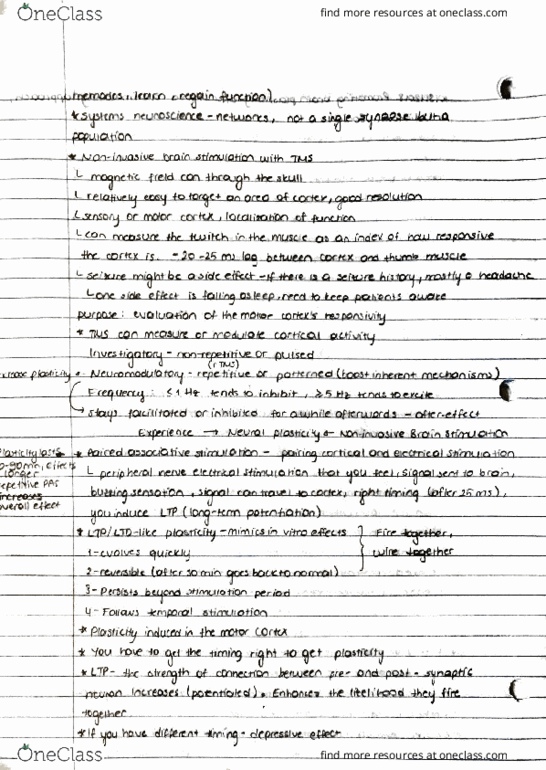 OneClass
find more resources at oneclass.com
memories, learn, regain function)
* Systems neuroscience - networks, not a single synapse but a
population
* Non-invasive brain stimulation with TMS
└ magnetic field can through the skull
└ relatively easy to target an area of cortex, good resolution
└ sensory or motor cortex, localization of function
└ can measure the twitch in the muscle as an index of how responsive
the cortex is. - 20-25 ms lag between cortex and thumb muscle
└ seizure might be a side effect - if there is a seizure history, mostly a headache
└ one side effect is falling asleep, need to keep patients awake
purpose: evaluation of the motor cortex's responsivity
* TMS can measure or modulate cortical activity
Investigatory - non-repetitive or pulsed
(rTMS)
more plasticity * Neuromodulatory - repetitive or patterned (boost inherent mechanisms)
Frequency: ≤1 Hz tends to inhibit, ≥5 Hz tends to excite
→ stays facilitated or inhibited for a while afterwards - after-effect
Experience → Neural plasticity ← Non-invasive Brain Stimulation
plasticity lasts * Paired associative stimulation - pairing cortical and electrical stimulation
-90 min, effects longer └ peripheral nerve electrical stimulation that you feel, signal sent to brain,
repetitive PAS buzzing sensation, signal can travel to cortex, right timing (after 25 ms),
increases overall effect you induce LTP (long-term potentiation)
* LTP/LTD-like plasticity - mimics in vitro effects } Fire together,
1-evolves quickly wire together
2-reversible (after 30 min goes back to normal)
3-Persists beyond stimulation period
4-Follows temporal stimulation
* Plasticity induced in the motor cortex
* You have to get the timing right to get plasticity
* LTP - the strength of connection between pre- and post-synaptic
neuron increases (potentiated). Enhances the likelihood they fire
together
* If you have different timing - depressive effect
OneClass
find more resources at oneclass.com